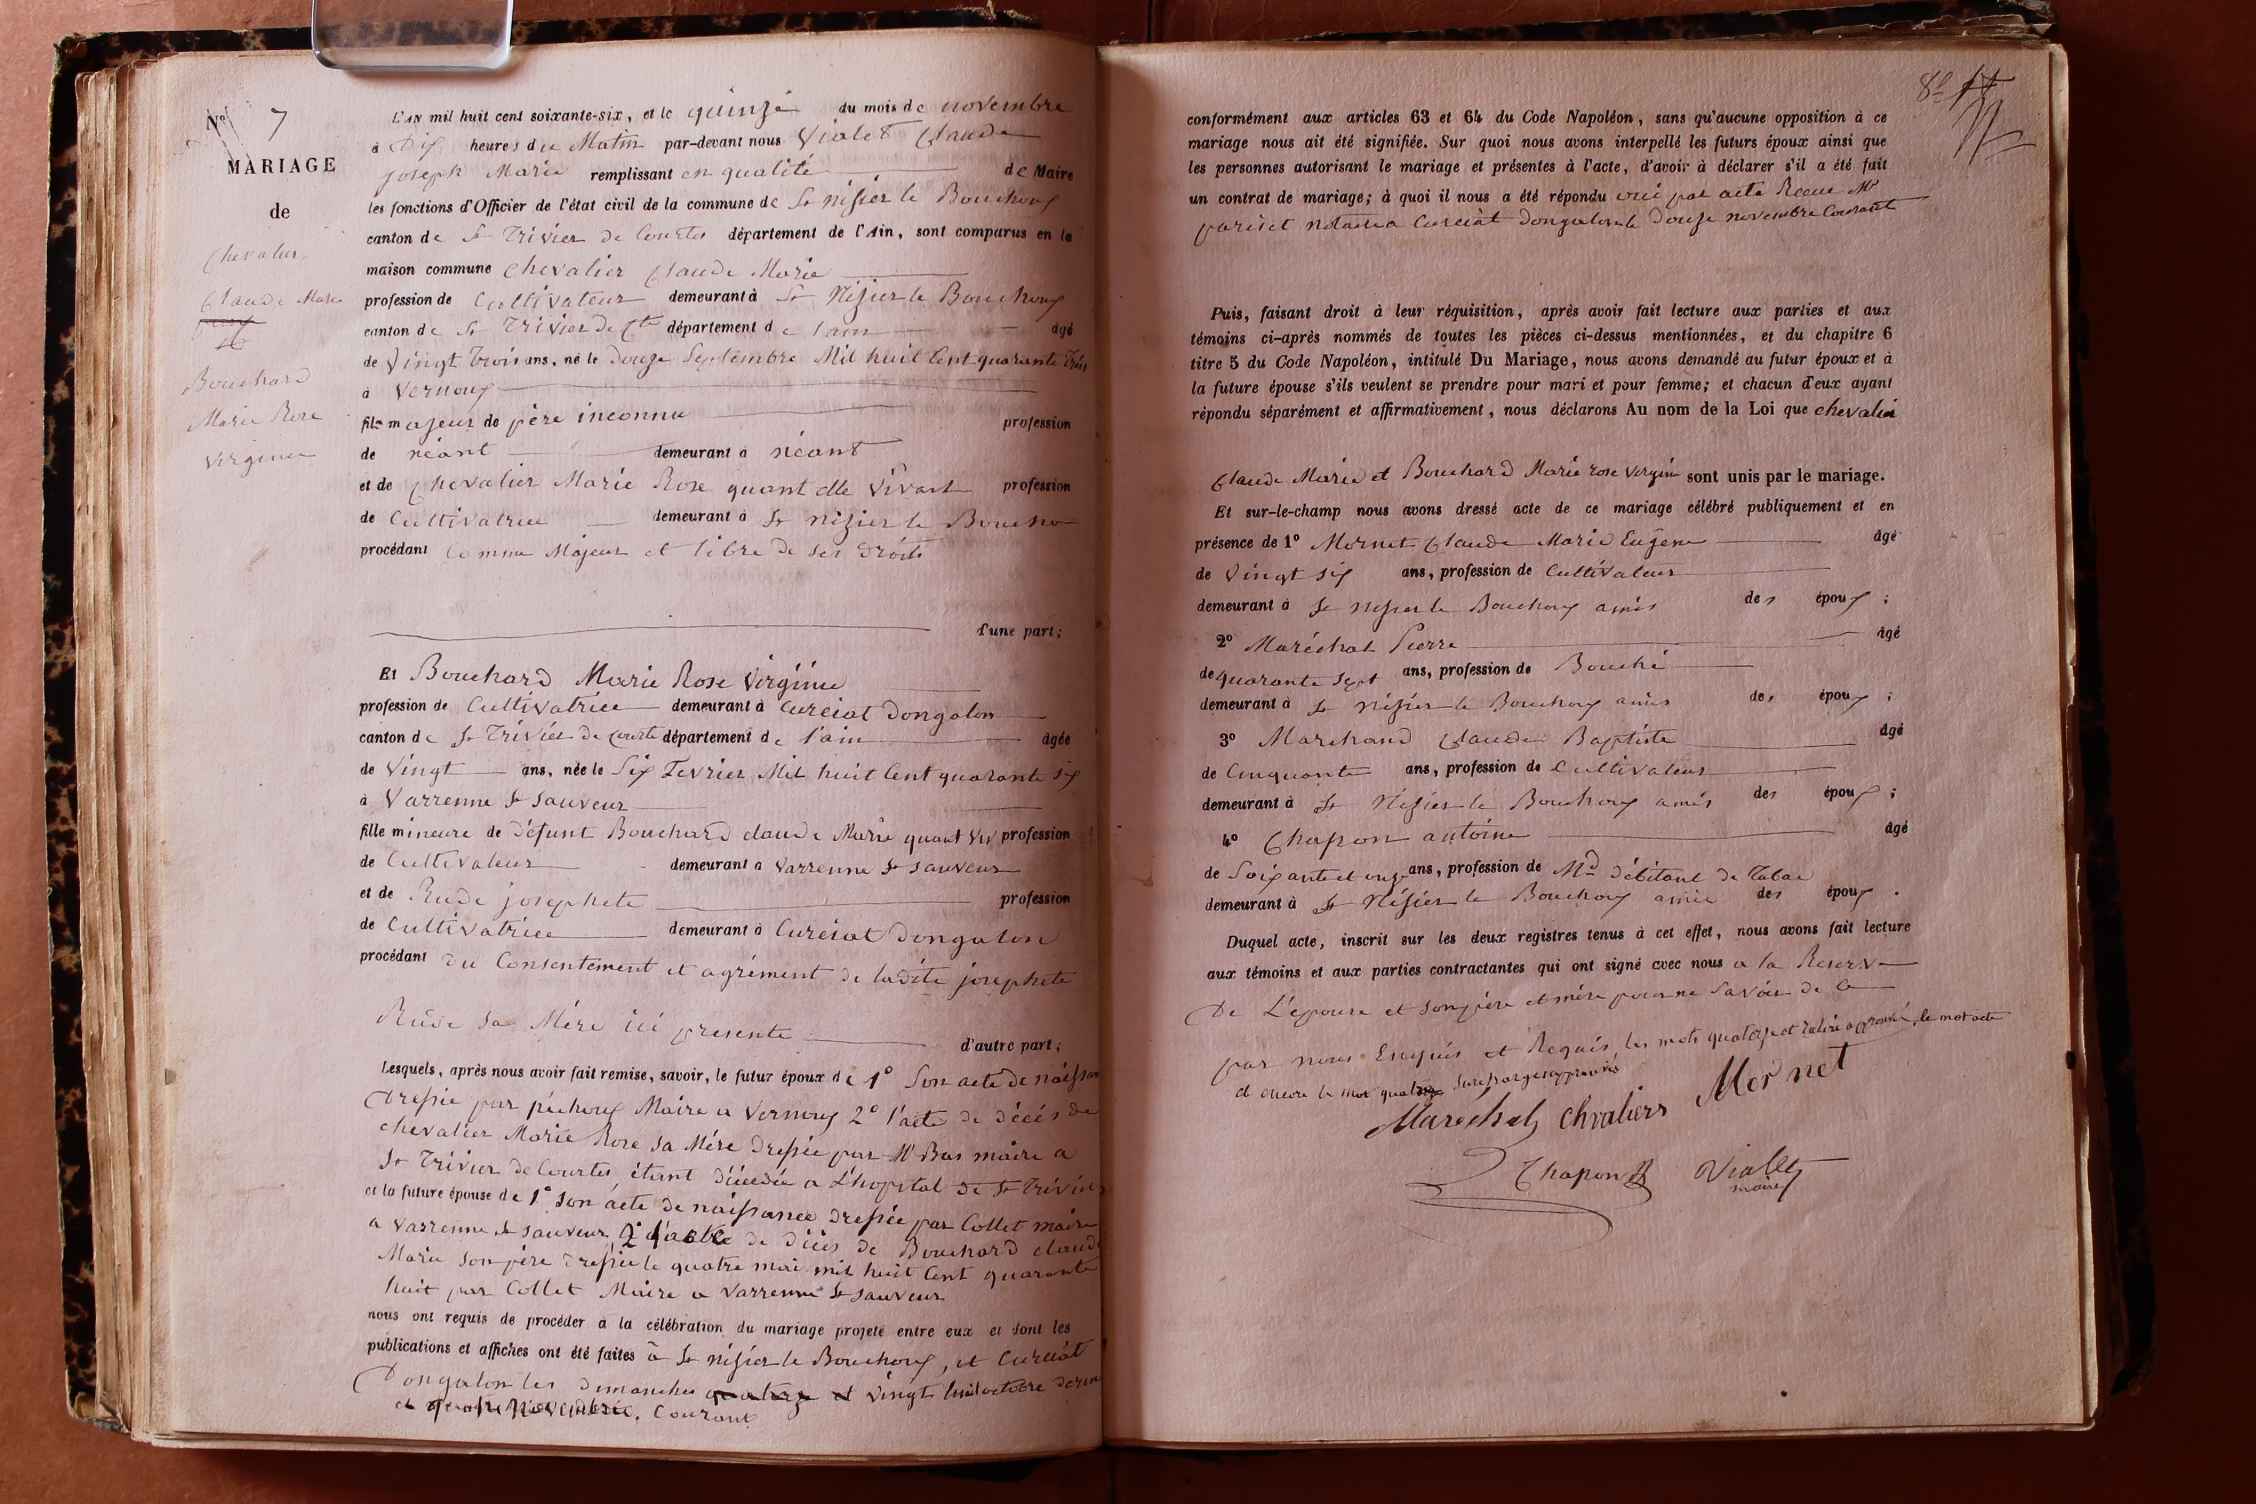 N° 7
MARIAGE
de
Chevalier
Claude Marie
Bouchard
Marie Rose
Virginie
L'AN mil huit cent soixante-six, et le quinze du mois de novembre
à Dix heures du Matin par-devant nous Vialet Claude
joseph Marie remplissant en qualité de Maire
les fonctions d'Officier de l'état civil de la commune de St nisier le Bouchoux
canton de St Trivier de Courtes département de l'Ain, sont comparus en la
maison commune Chevalier Claude Marie
profession de Cultivateur demeurant à St Nisier le Bouchoux
canton de St Trivier de Ctes département de l'ain âgé
de Vingt trois ans, né le Douze Septembre Mil huit Cent quarante Trois
à Vernoux
fils majeur de père inconnu profession
de néant demeurant à néant
et de Chevalier Marie Rose quant elle Vivait profession
de Cultivatrice demeurant à St nizier le Boucho
procédant Comme Majeur et libre de ses droits
d'une part;
Et Bouchard Marie Rose Virginie
profession de Cultivatrice demeurant à Curciat Dongalon
canton de St Trivier de Courte département de l'ain âgée
de Vingt ans, née le Six Fevrier Mil huit Cent quarante six
à Varrenne St sauveur
fille mineure de défunt Bouchard claude Marie quant Viv profession
de Cultivateur demeurant à Varrenne St sauveur
et de Rude josephete profession
de Cultivatrice demeurant à Curciat Dongalon
procédant du Consentement et agrément de ladite josephete
Rude sa Mére ici presente
d'autre part;
Lesquels, après nous avoir fait remise, savoir, le futur époux de 1° Son acte de naissan
Dressée par péchoux Maire a Vernoux 2° l'acte de décés de
Chevalier Marie Rose sa Mére Dressée par Mr Bas maire a
St Trivier de Courtes, étant décédée a L'hopital de St Trivier
et la future épouse de 1° Son acte de naissance dressée par Collet maire
a Varrenne St sauveur 2° l'acte de décés de Bouchard claude
Marie Son pére dressée le quatre mai mil huit Cent quarante
huit par Collet Maire a Varrenne St sauveur
nous ont requis de procéder à la célébration du mariage projeté entre eux et dont les
publications et affiches ont été faites à St nisier le Bouchoux, et Curciat
Dongalon les dimanches quatorze et vingt huit octobre dernier
et quatre novembre, Courant
conformément aux articles 63 et 64 du Code Napoléon, sans qu'aucune opposition à ce
mariage nous ait été signifiée. Sur quoi nous avons interpellé les futurs époux ainsi que
les personnes autorisant le mariage et présentes à l'acte, d'avoir à déclarer s'il a été fait
un contrat de mariage; à quoi il nous a été répondu oui par acte Recue Mr
pariset notaire a Curciat Dongalon le Douze novembre Courant
Puis, faisant droit à leur réquisition, après avoir fait lecture aux parties et aux
témoins ci-après nommés de toutes les pièces ci-dessus mentionnées, et du chapitre 6
titre 5 du Code Napoléon, intitulé Du Mariage, nous avons demandé au futur époux et à
la future épouse s'ils veulent se prendre pour mari et pour femme; et chacun d'eux ayant
répondu séparément et affirmativement, nous déclarons Au nom de la Loi que chevalier
Claude Marie et Bouchard Marie rose Virginie sont unis par le mariage.
Et sur-le-champ nous avons dressé acte de ce mariage célébré publiquement et en
présence de 1° Mornet Claude Marie Eugène âgé
de Vingt six ans, profession de Cultivateur
demeurant à St nisier le Bouchoux amis des époux ;
2° Maréchal Pierre âgé
de quarante sept ans, profession de Bouché
demeurant à St nisier le Bouchoux amis des époux ;
3° Marchand Claude Baptiste âgé
de Cinquante ans, profession de Cultivateur
demeurant à St Nisier le Bouchoux amis des époux ;
4° Chapon antoine âgé
de Soixante et onze ans, profession de Md débitant de Tabac
demeurant à St Nisier le Bouchoux amis des époux .
Duquel acte, inscrit sur les deux registres tenus à cet effet, nous avons fait lecture
aux témoins et aux parties contractantes qui ont signé avec nous a la Reserve
De L'épouse et son pére et mére pour ne Savoir de ce
par nous Enquis et Requis, les mots quatorze et approuvé, le mot acte
et encore le mot quatre surchargé approuvés
Marechal chvaliers Mornet
Chapon Vialet
maire